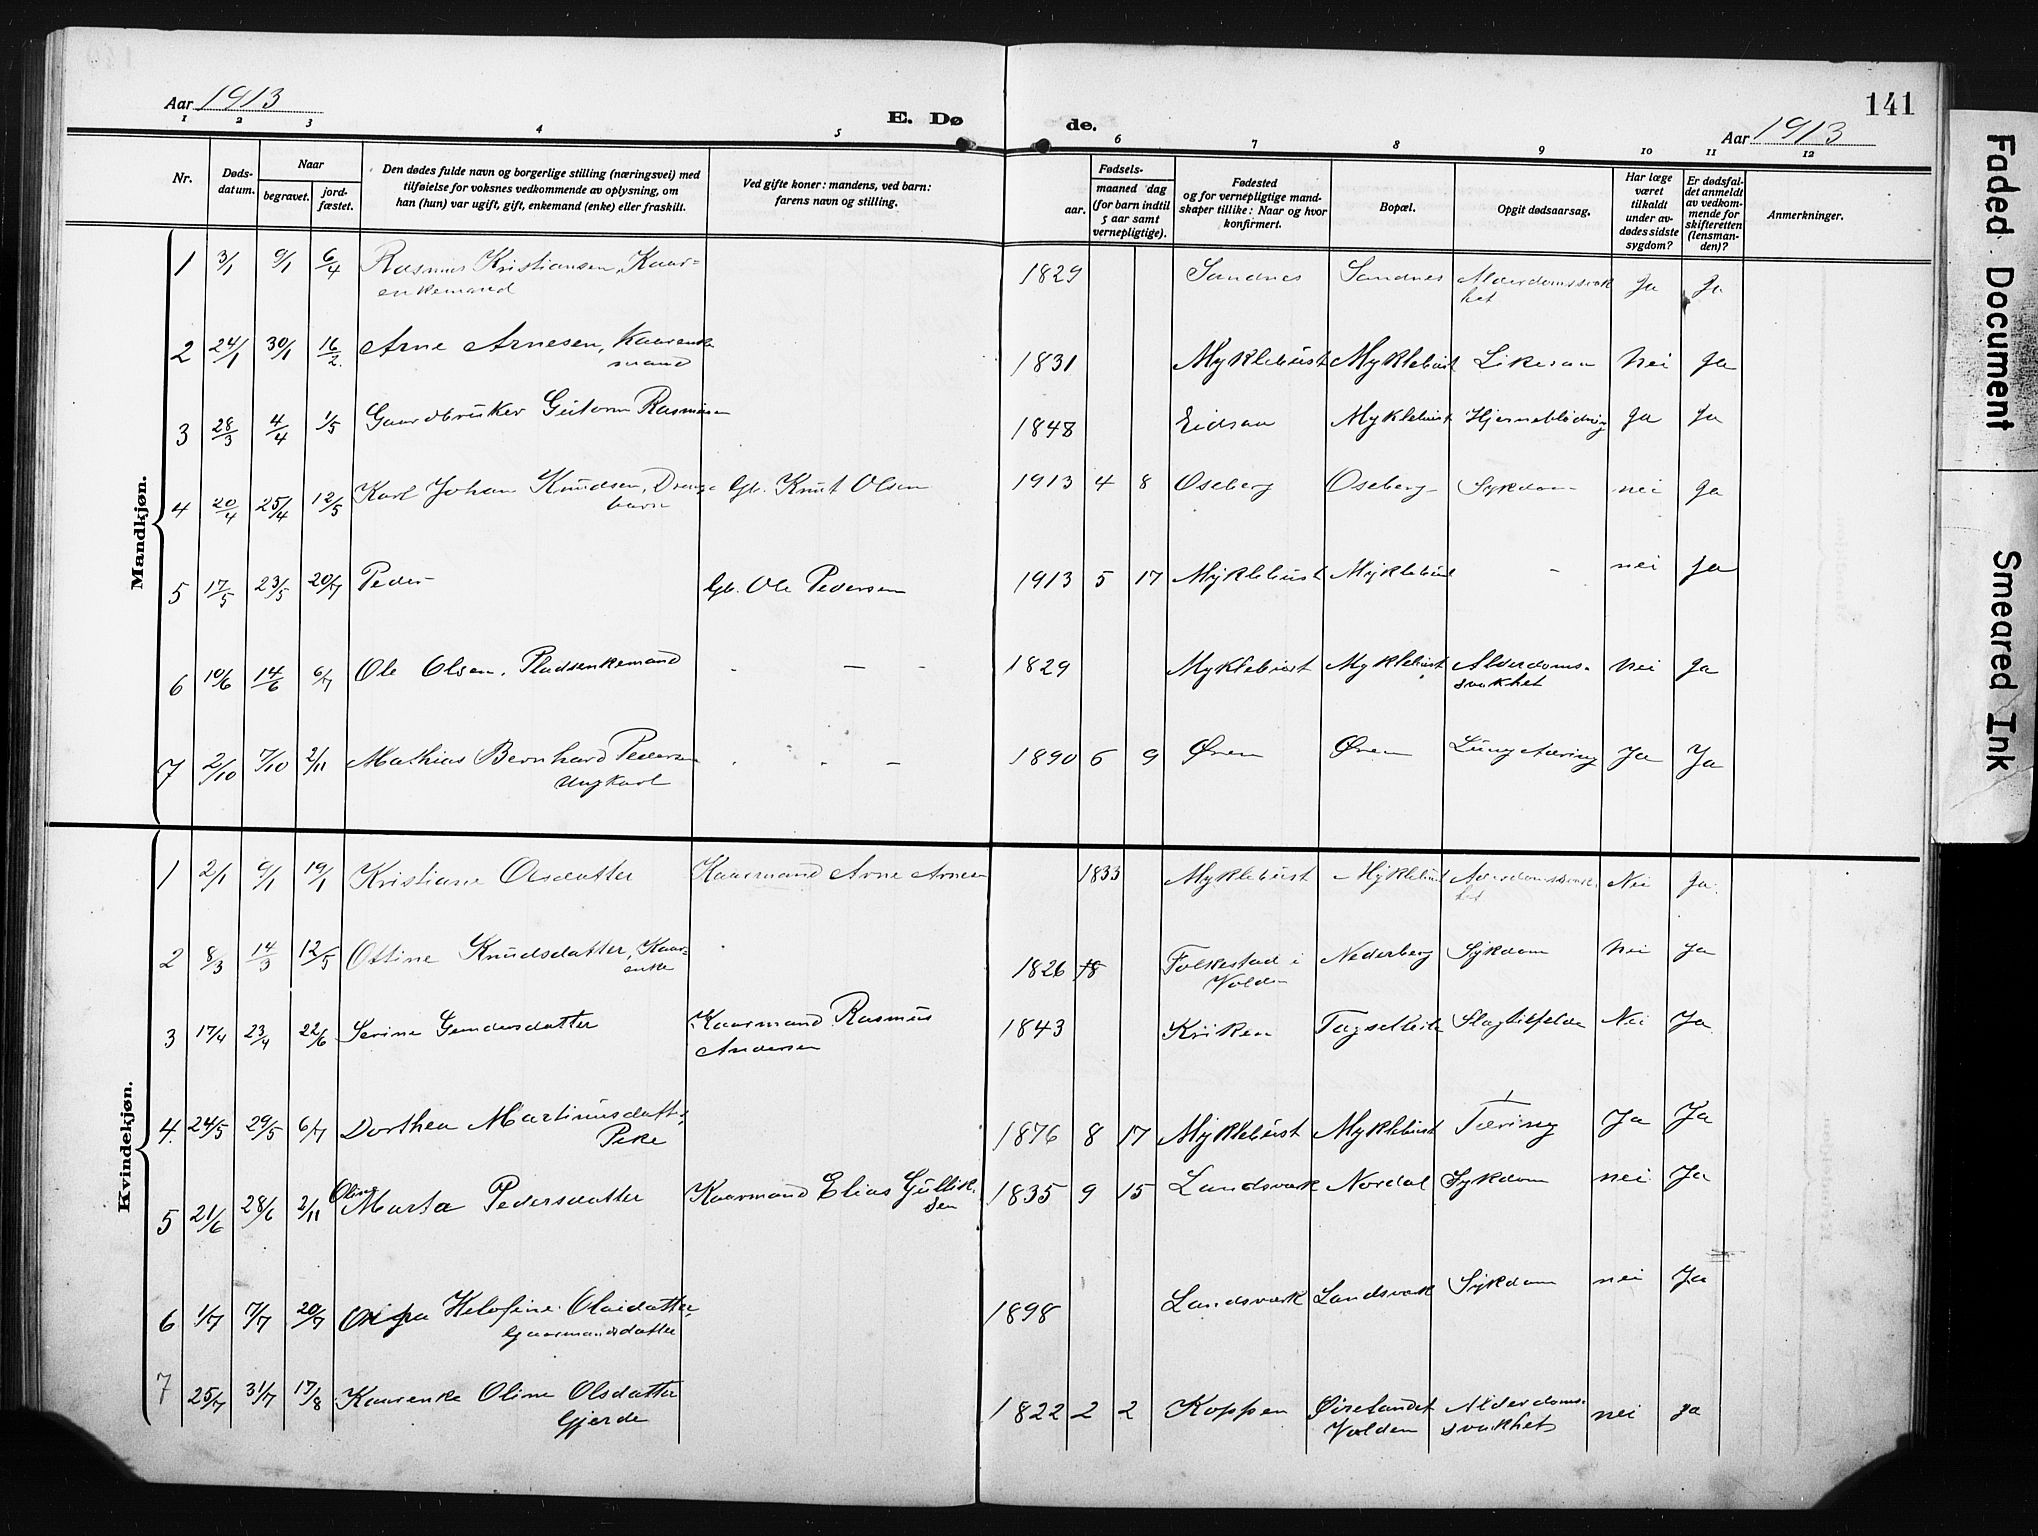 Aar 1913
E. Dø
de.
141
Aar 1913
1 2 3 4 5 6 7 8 9 10 11 12
Nr.
Døds-
datum.
Naar
begravet.
jord-
fæstet.
Den dødes fulde navn og borgerlige stilling (næringsvei) med
tilføielse for voksnes vedkommende av oplysning, om
han (hun) var ugift, gift, enkemand (enke) eller fraskilt.
Ved gifte koner: mandens, ved barn:
farens navn og stilling.
Fødsels-
aar.
maaned dag
(for barn indtil
5 aar samt
vernepligtige).
Fødested
og for vernepligtige mand-
skaper tillike: Naar og hvor
konfirmert.
Bopæl.
Opgit dødsaarsag.
Har læge
været
tilkaldt
under av-
dødes sidste
sygdom?
Er dødsfal-
det anmeldt
av vedkom-
mende for
skifteretten
(lensman-
den)?
Anmerkninger.
Mandkjøn.
1 3/1 9/1 6/4 Rasmus Kristiansen, Kaar- 1829 Sandnes Sandnes Alderdomssvak Ja Ja
enkemand het
2 24/1 30/1 16/2. Arne Arnesen, Kaarenke 1831 Myklebust Myklebust Nei Ja
mand
3 28/3 4/4 1/5 Gaardbruker Gutorm Rasmusen 1848 Eidsaa Myklebust Hjerneblødning Ja Ja
4 20/4 25/4 12/5 Karl Johan Knudsen, Drenge Gb. Knut Olsen 1913 4 8 Oseberg Oseberg Sykdom nei Ja
barn
5 17/5 23/5 20/7 Peder Gb. Ole Pedersen 1913 5 17 Myklebust Myklebust - nei Ja
6 10/6 14/6 6/7 Ole Olsen, Pladsenkemand - — - 1829 Myklebust Myklebust Alderdoms- Nei Ja
svakhet
7 2/10 7/10 2/11 Mathias Bernhard Pedersen 1890 6 9 Øren Øren Lungetæring Ja Ja
Ungkarl
Kvindekjøn.
1 2/1 9/1 19/1 Kristiane Olsdatter Kaarmand Arne Arnesen 1833 Myklebust Myklebust Alderdomssvak Nei Ja.
het
2 8/3 14/3 12/5 Ottine Knudsdatter, Kaar- 1826 18 Folkestad i Nederberg Sykdom Nei Ja
enke Volden
3 17/4 23/4 22/6 Serine Gundersdatter Kaarmand Rasmus 1843 Kriken Slagtilfelde Nei Ja
Andersen
4. 24/5 29/5 6/7 Dorthea Martinusdatt. 1876 8 17 Myklebust Myklebust Tæring Ja Ja
Pike
Oline
5 21/6 28/6 2/11 Marta Pedersdatter Kaarmand Elias Gullik 1835 9 15 Landsværk Nordal Sykdom nei Ja
sen
6 1/7 7/7 20/7 Olaidatter, 1898 Landsværk Landsværk Sykdom nei Ja
Gaarmandsdatter
7 25/7 31/7 17/8 Kaarenke Oline Olsdatter 1822 2 2 Koppen Alderdoms- nei Ja
Gjerde Volden svakhet
Faded Document
Smeared Ink